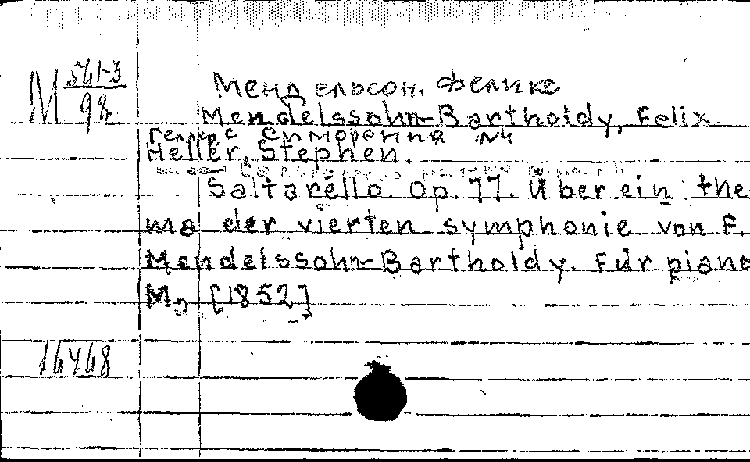 М 561-3
94
Мендельсон, Феликс
Mendelssohn-Bartholdy, Felix
Симфония №4
Heller, Stephen.
Saltarello. Op. 77. Über ein the
ma der vierten symphonie von F.
Mendelssohn-Bartholdy. Für piano
[1852]
16468